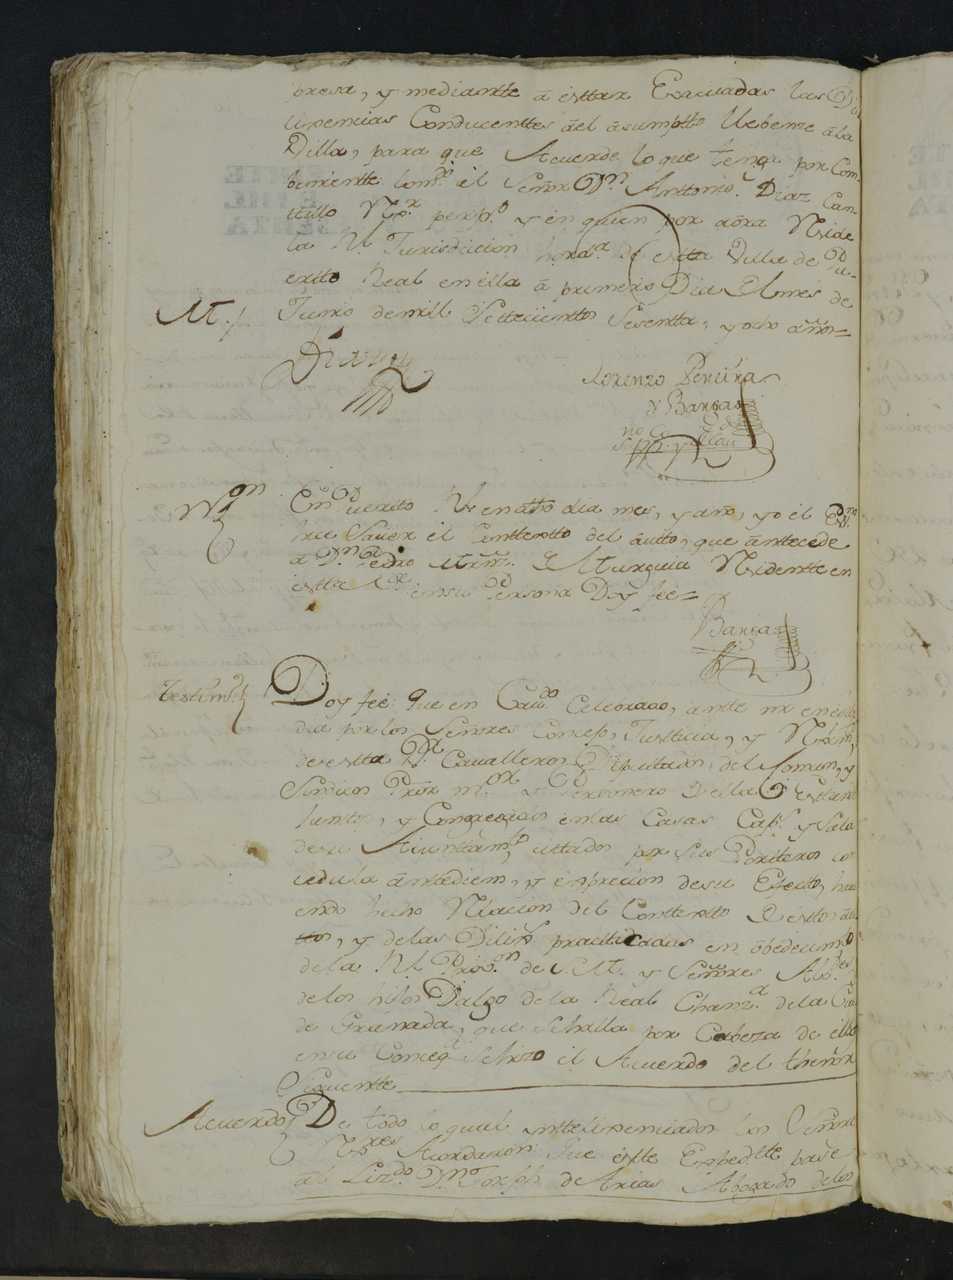 presa, y mediantte â esttar Evacuadas las Di-
lixencias Conducenttes âel âsumptto llebense âla
Villa, para que Acuerde lo que tenga por Com-
benientte lo m.do el Señor D.n Anttonio Diaz Can-
tillo Rex.r perp.o y en quien por aôra Reside
la Rl Jurisdicion horđ.a de estta Villa de Pu-
erto Real en ella â primero Dia del mes de
Junio de mill Settecientos Sesentta, y ocho años=
Lorenzo Pereira
y Bargas
no C.
N.on
En Puerto Rl en dho dia mes, y año, yo el Ess.no
hice Saver el Conttenido del âutto, que ânttecede
a D.n Pedro Martin. de Murguia Residentte en
estta V.a en su Persona Doy fee=
Bargas
Testim.o
Doy feê que en Cav.do Celebrado, ante mi en estte
dia por los Señores Concejo, Justicia, y Rexim.
de estta V.a Cavalleros Diputados del Comun, y
Sindico Pror m.or y Personero de ella q.e esttan
Junttos, y Congregados en las Casas Cap.s y Sala
de su Aiuntam.to cittados por sus Portteros con
cedula ântediem, y expresion de su Efecto, havi
endo hecho Relacion del Conttenido de esttos âu
ttos, y de las Dilix.s practticadas en ôbedecim.to
de la Rl Prov.on de S.M. y Señores Alc.des
de los hijos Dalgo de la Real Chanz.a de la Ciu.d
de Granada, que Se halla por Cabeza de ellos
en su Conseq.a Se hizo el Acuerdo del thenor
Siguientte
Acuerdo
De todo lo qual Intteligenciados los Señores
Acordaron Que estte Exped.tte pase
al Lizdo D.n Joseph de Arias Abogado de los